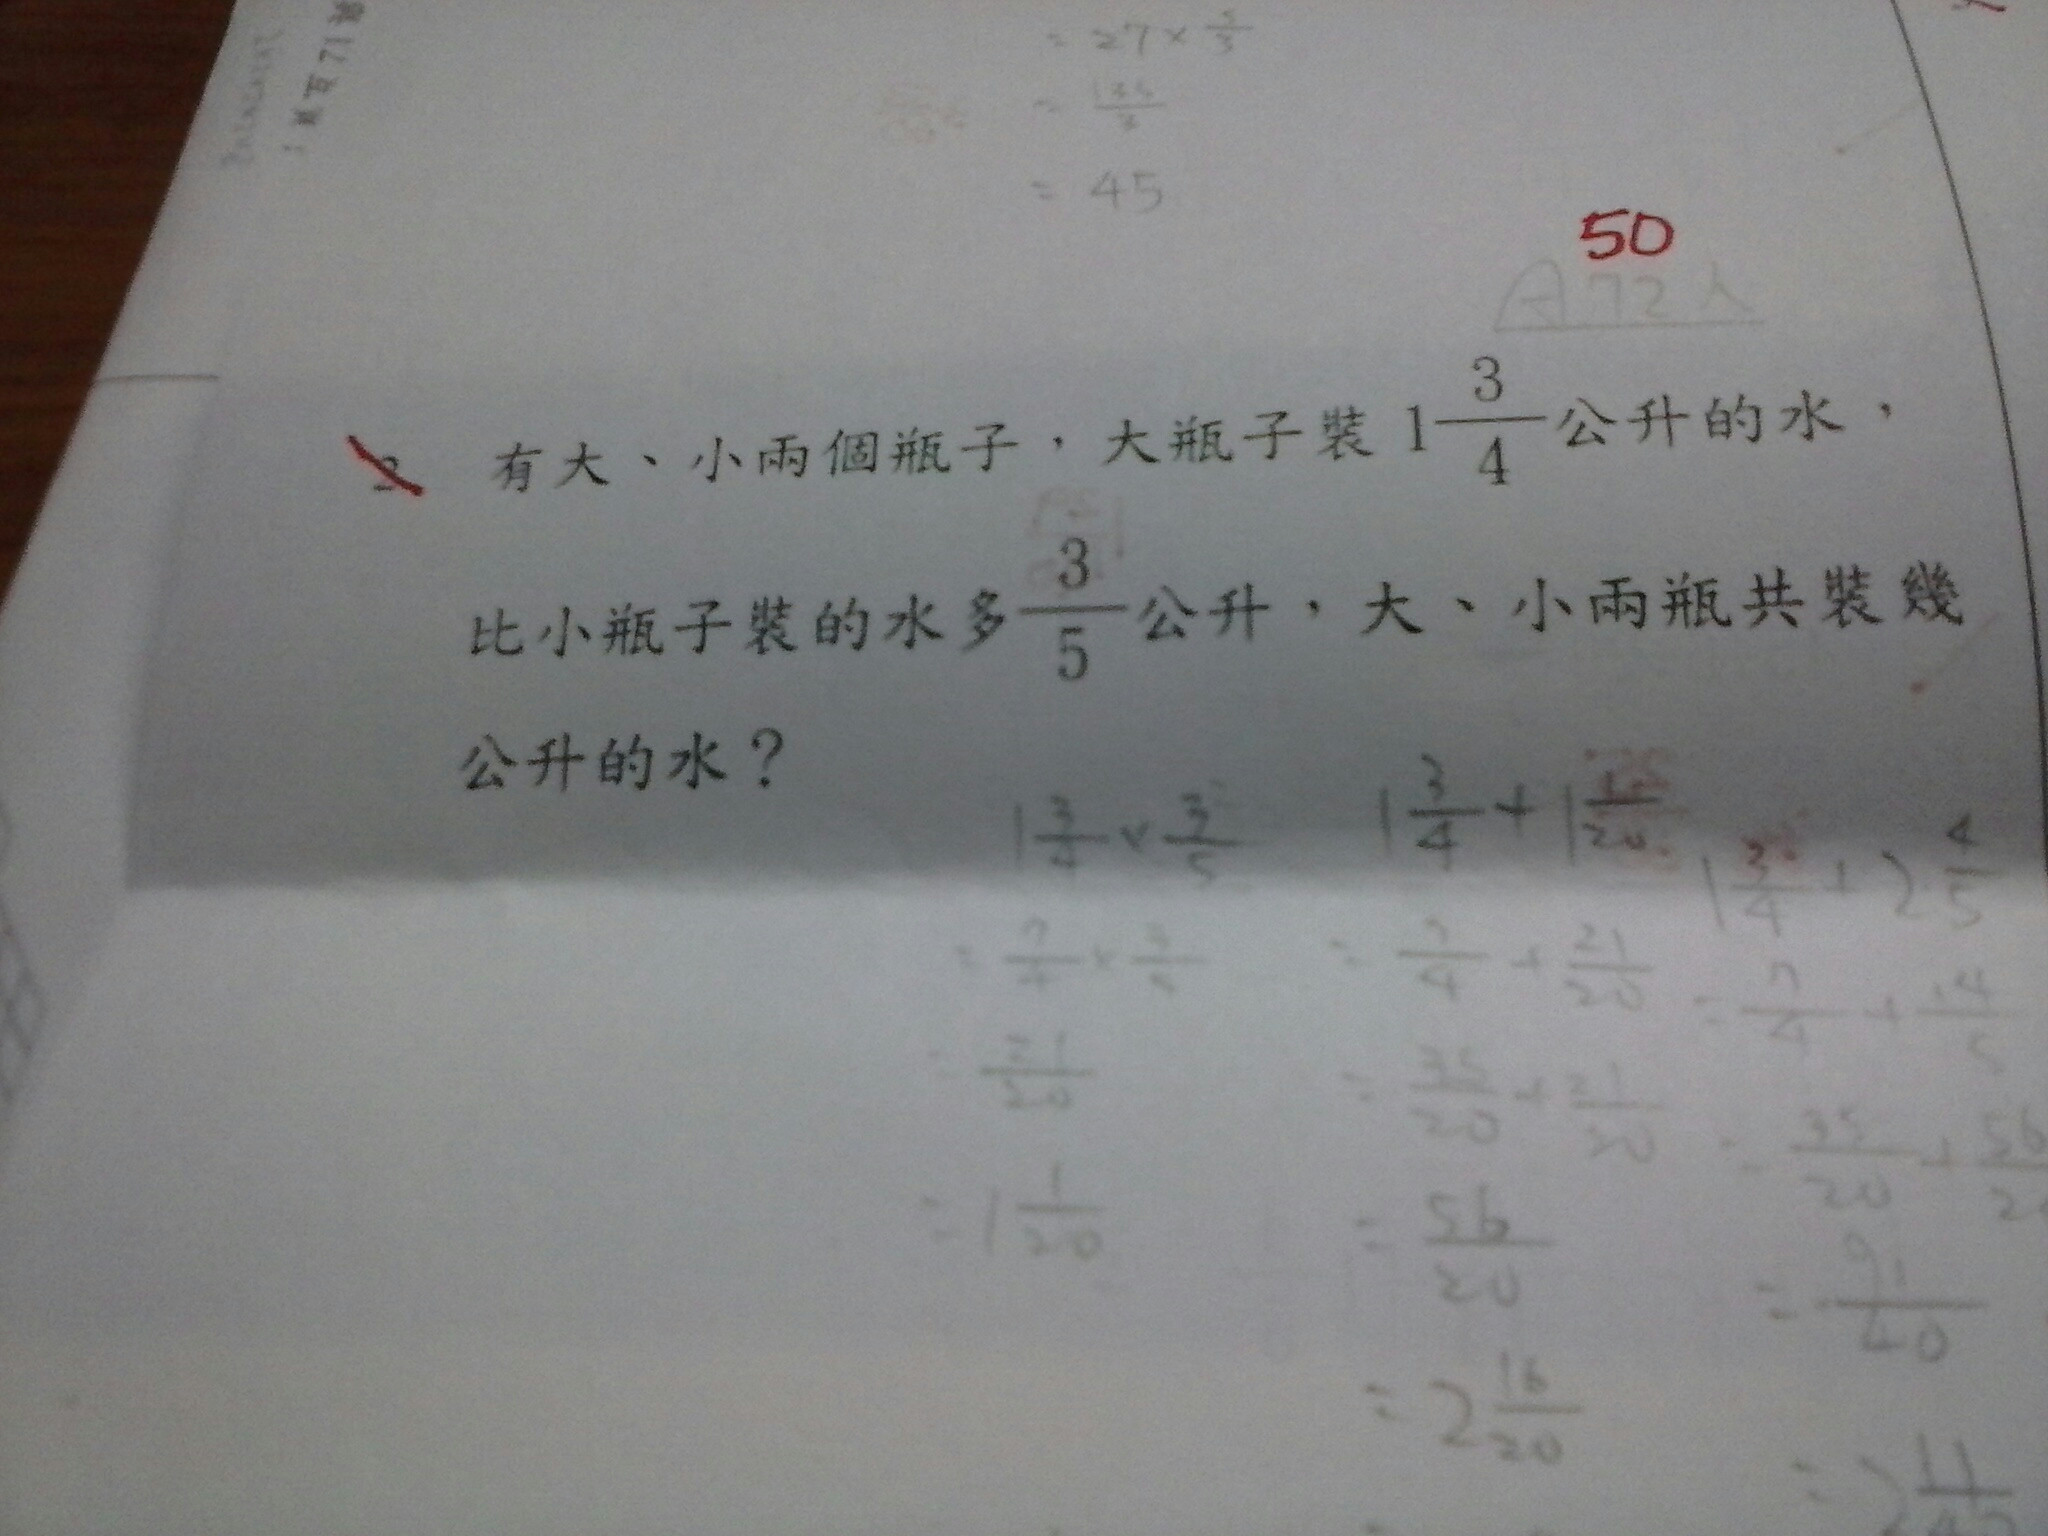 = 27 × 5/3
= 135/3
= 45
50
A 72人
有大、小兩個瓶子，大瓶子裝 1 3/4 公升的水，
比小瓶子裝的水多 3/5 公升，大、小兩瓶共裝幾
公升的水？
1 3/4 × 3/5
= 7/4 × 3/5
= 21/20
= 1 1/20
1 3/4 + 1 1/20
= 7/4 + 21/20
= 35/20 + 21/20
= 56/20
= 2 16/20
1 3/4 + 2 4/5
= 7/4 + 14/5
= 35/20 + 56/20
= 91/40